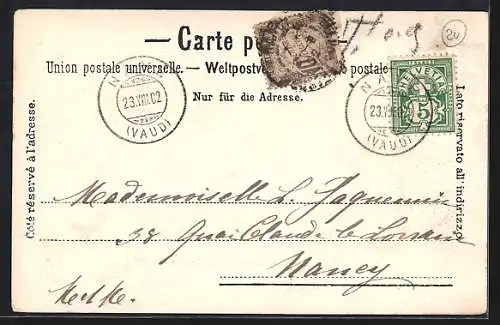 — Carte po
Union postale universelle. — Weltpostve postale
Nur für die Adresse.
Côté réservé à l'adresse.
Lato riservato all'indirizzo.
23.VIII.02
(VAUD)
HELVETIA
5
23.VIII.02
(VAUD)
10
20
Mademoiselle L. Jaquemin
38 Quai Claude le Lorrain
Nancy